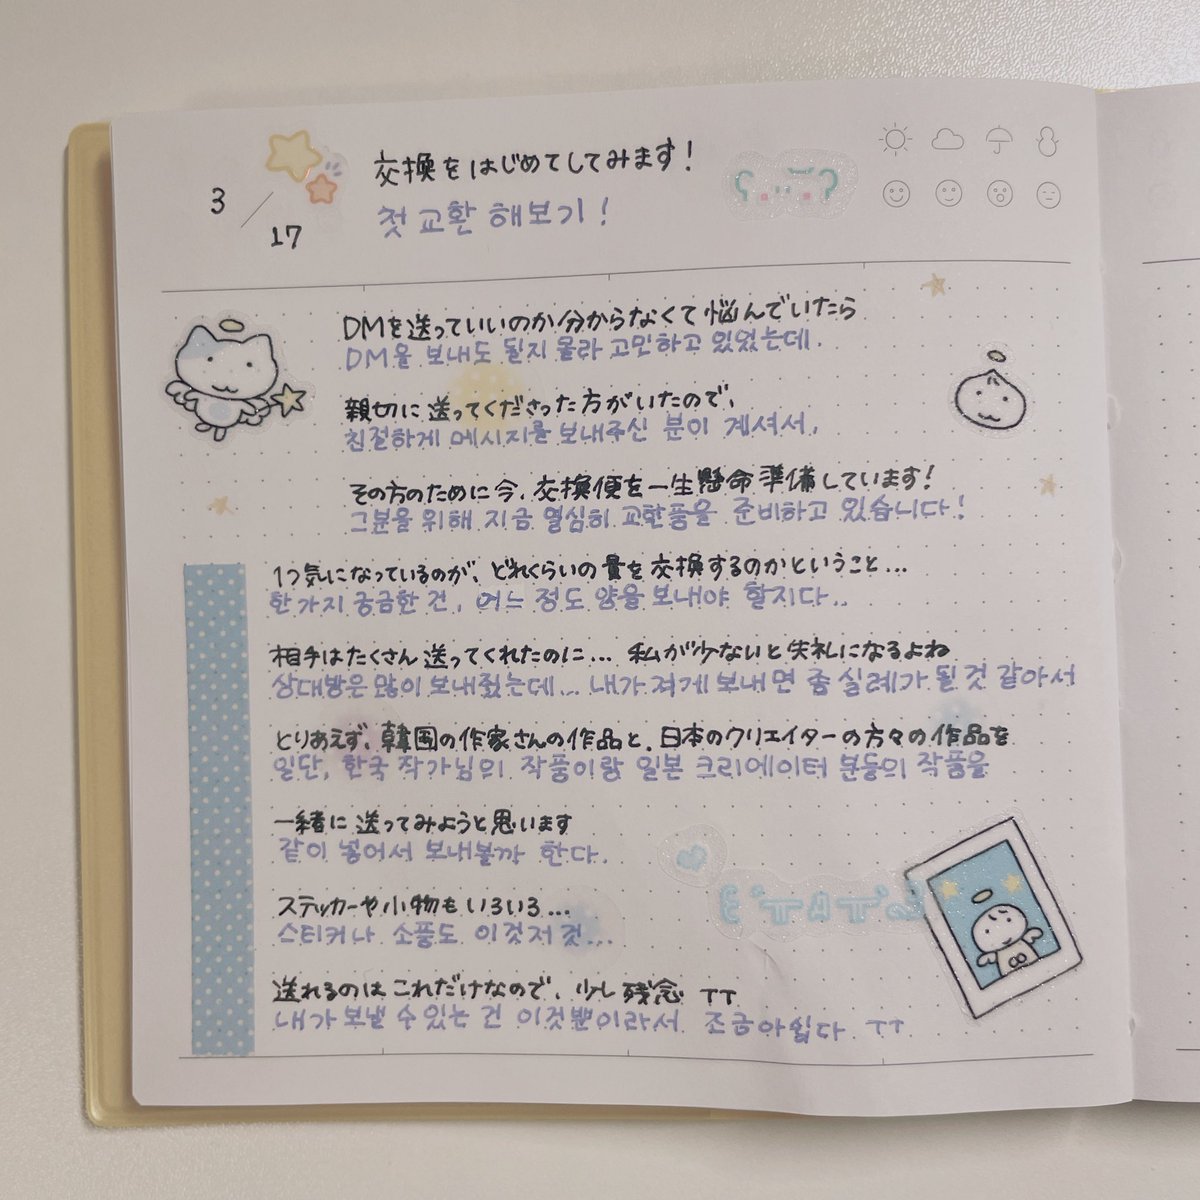 3/17
交換をはじめてしてみます!
첫 교환 해보기!
DMを送っていいのか分からなくて悩んでいたら
DM을 보내도 될지 몰라 고민하고 있었는데.
親切に送ってくださった方がいたので、
친절하게 메시지를 보내주신 분이 계셔서,
その方のために今、交換便を一生懸命準備しています!
그분을 위해 지금 열심히 교환품을 준비하고 있습니다!
1つ気になっているのが、どれくらいの量を交換するのかということ...
한가지 궁금한 건, 어느 정도 양을 보내야 할지다..
相手はたくさん送ってくれたのに... 私が少ないと失礼になるよね
상대방은 많이 보내줬는데... 내가 적게 보내면 좀 실례가 될 것 같아서
とりあえず、韓国の作家さんの作品と、日本のクリエイターの方々の作品を
일단, 한국 작가님의 작품이랑 일본 크리에이터 분들의 작품을
一緒に送ってみようと思います
같이 넣어서 보내볼까 한다.
ステッカーや小物もいろいろ...
스티커나 소품도 이것저것...
送れるのはこれだけなので、少し残念 TT
내가 보낼 수 있는 건 이것뿐이라서 조금 아쉽다 TT